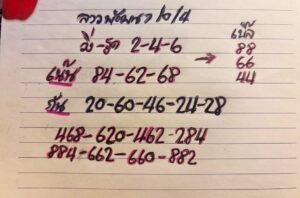 ลาวพัฒนา 10/4
วิ่ง-รูด 2-4-6
เน้น 84-62-68
→ เบิ้ล
88
66
44
กัน 20-60-46-24-28
468-620-462-284
884-662-660-882